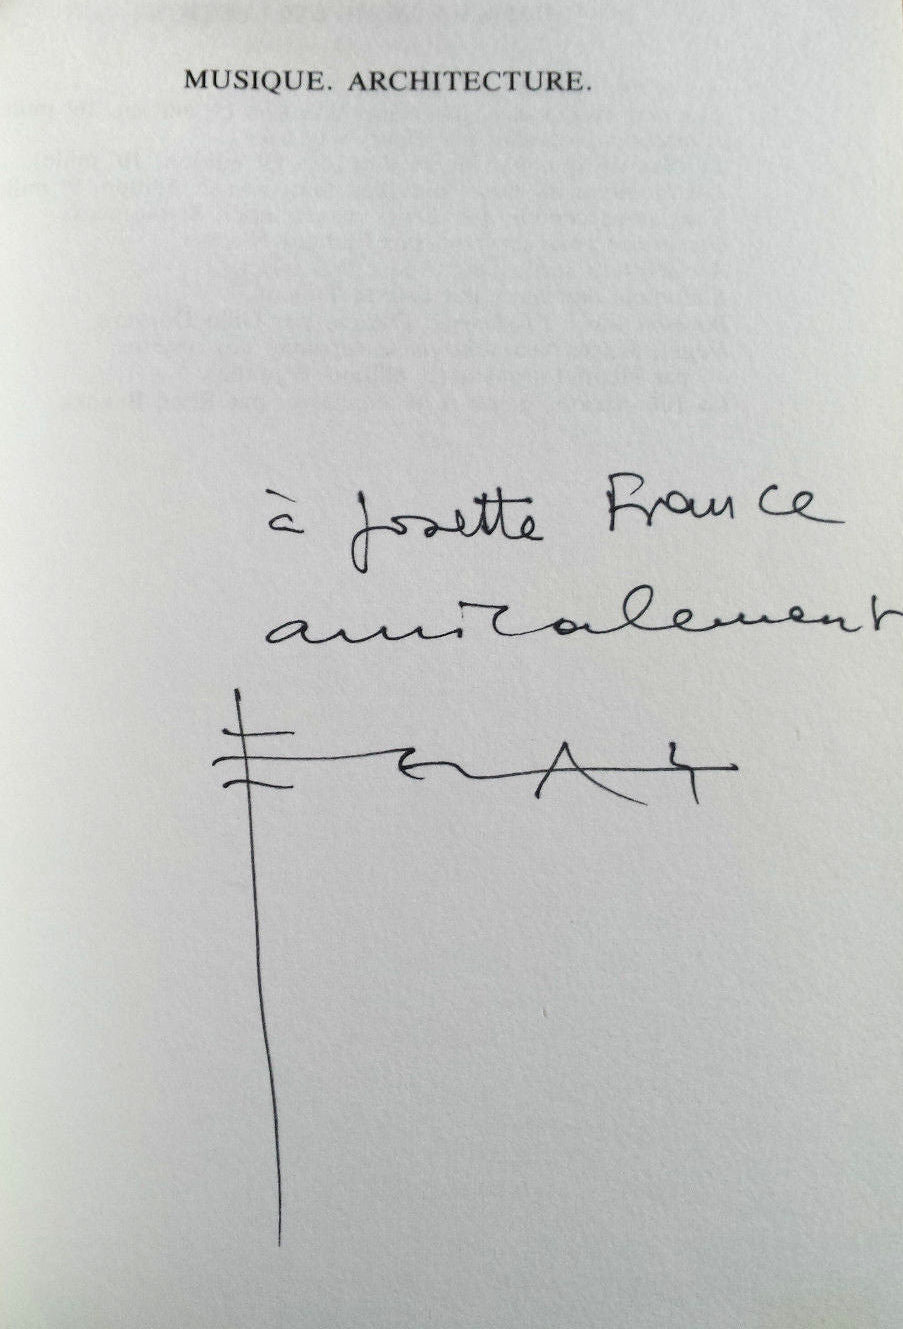 MUSIQUE. ARCHITECTURE.
à Josette France
amicalement